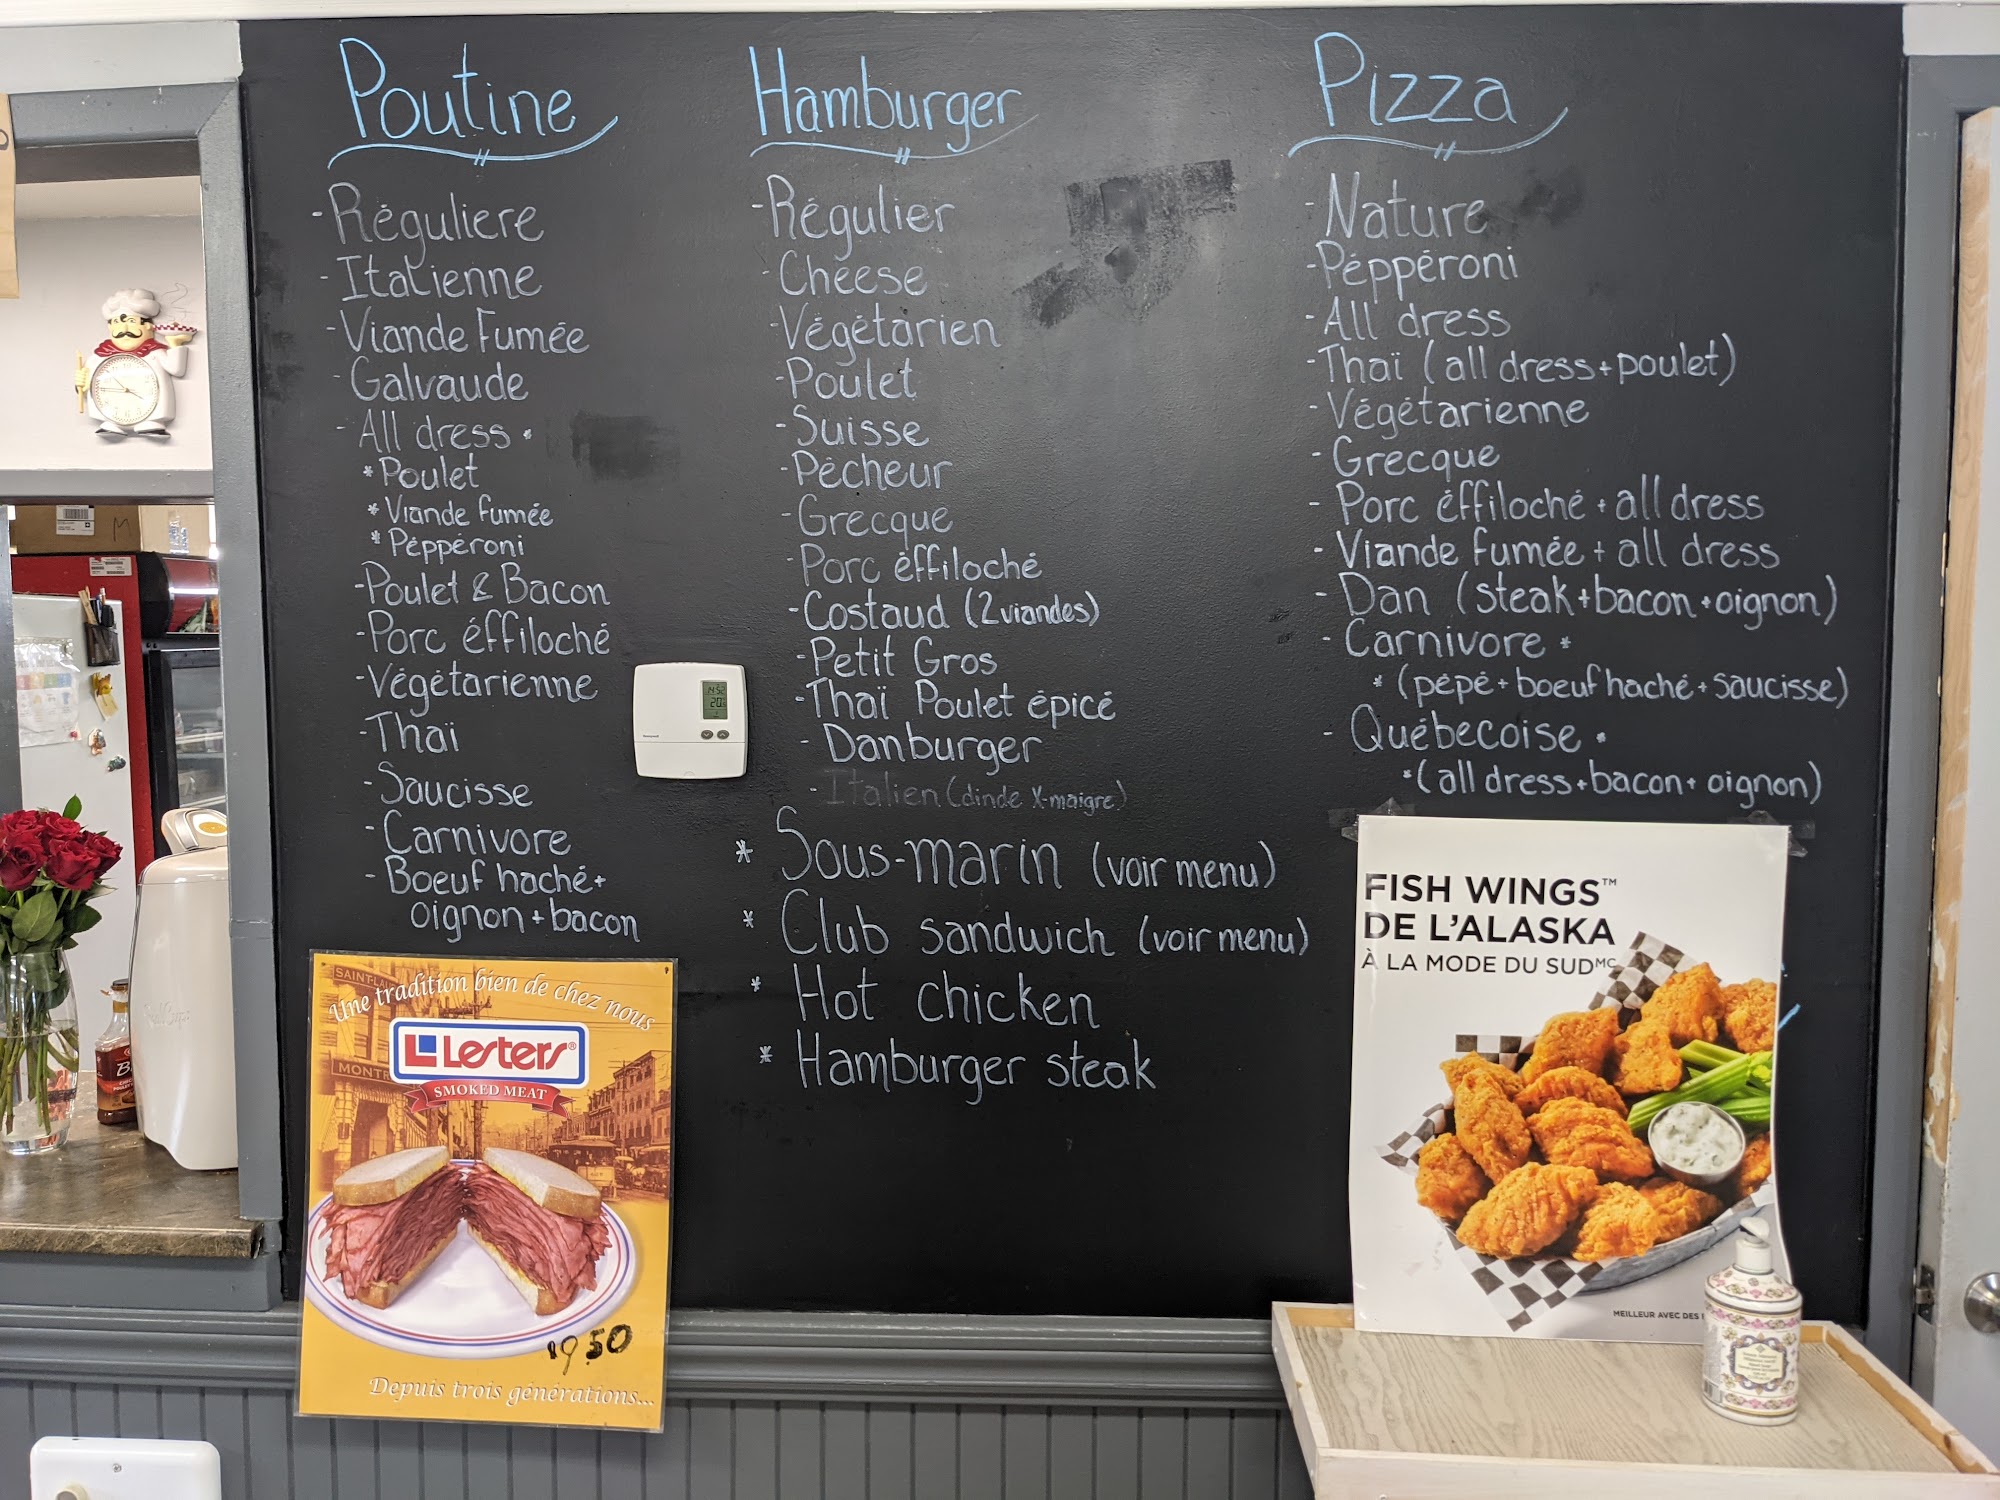 Poutine
- Réguliere
- Italienne
- Viande Fumée
- Galvaude
- All dress •
* Poulet
* Viande fumée
* Péppéroni
- Poulet & Bacon
- Porc éffiloché
- Végétarienne
- Thaï
- Saucisse
- Carnivore
- Boeuf haché +
oignon + bacon
Hamburger
- Régulier
- Cheese
- Végétarien
- Poulet
- Suisse
- Pêcheur
- Grecque
- Porc éffiloché
- Costaud (2 viandes)
- Petit Gros
- Thaï Poulet épicé
- Danburger
- Italien (dinde X-maigre)
* Sous-marin (voir menu)
* Club sandwich (voir menu)
* Hot chicken
* Hamburger steak
Pizza
- Nature
- Péppéroni
- All dress
- Thaï (all dress + poulet)
- Végétarienne
- Grecque
- Porc éffiloché + all dress
- Viande fumée + all dress
- Dan (steak + bacon + oignon)
- Carnivore *
* (pépé + boeuf haché + saucisse)
- Québecoise •
* (all dress + bacon + oignon)
Une tradition bien de chez nous
SAINT-LAU
L Lesters®
MONTR
SMOKED MEAT
19.50
Depuis trois générations...
FISH WINGS™
DE L'ALASKA
À LA MODE DU SUD MC
MEILLEUR AVEC DES
Honeywell
M